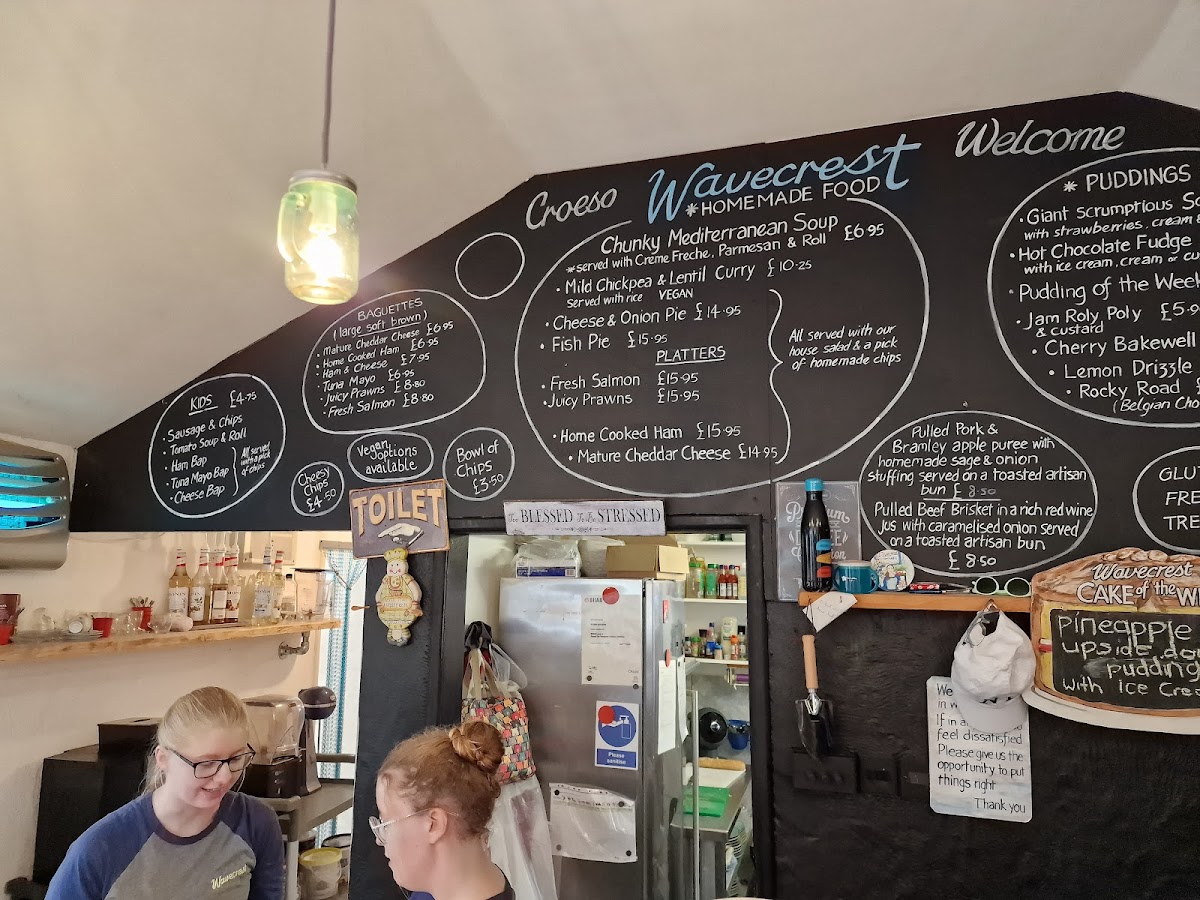 Croeso
Wavecrest
*HOMEMADE FOOD
Welcome
KIDS £4.75
• Sausage & Chips
• Tomato Soup & Roll
• Ham Bap
• Tuna Mayo Bap
• Cheese Bap
All served
with a pick
of chips
BAGUETTES
(large soft brown)
• Mature Cheddar Cheese £6.95
• Home Cooked Ham £6.95
• Ham & Cheese £7.95
• Tuna Mayo £6.95
• Juicy Prawns £8.80
• Fresh Salmon £8.80
Cheesy
Chips
£4.50
Vegan
options
available
Bowl of
Chips
£3.50
Chunky Mediterranean Soup £6.95
*served with Creme Freche, Parmesan & Roll
• Mild Chickpea & Lentil Curry £10.25
Served with rice VEGAN
• Cheese & Onion Pie £14.95
• Fish Pie £15.95
PLATTERS
• Fresh Salmon £15.95
• Juicy Prawns £15.95
• Home Cooked Ham £15.95
• Mature Cheddar Cheese £14.95
All served with our
house salad & a pick
of homemade chips
* PUDDINGS
• Giant Scrumptious
with strawberries, cream
• Hot Chocolate Fudge
with ice cream, cream or
• Pudding of the Week
• Jam Roly Poly
& custard
• Cherry Bakewell
• Lemon Drizzle
• Rocky Road
(Belgian
Pulled Pork &
Bramley apple puree with
homemade sage & onion
stuffing served on a toasted artisan
bun £8.50
Pulled Beef Brisket in a rich red wine
Jus with caramelised onion served
on a toasted artisan bun
£8.50
GLU
FRE
TRE
TOILET
Too BLESSED To Be STRESSED
Please
sanitise
Wavecrest
CAKE of the
Pineapple
upside
pudding
with Ice
If in
feel dissatisfied
Please give us the
opportunity to put
things right
Thank you
Wavecrest